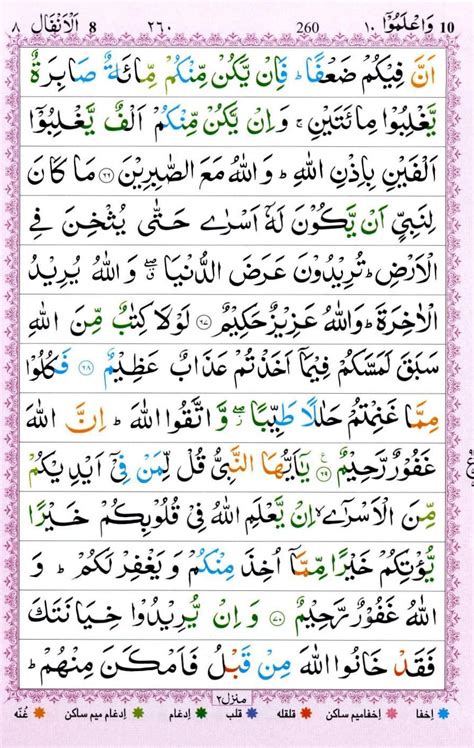 وَاعْلَمُوْٓا ١٠ 10 260 ٢٦٠ 8 اَلْاَنْفَال ٨
اَنَّ فِيْكُمْ ضَعْفًا ؕ فَاِنْ يَّكُنْ مِّنْكُمْ مِّائَةٌ صَابِرَةٌ
يَّغْلِبُوْا مِائَتَيْنِ ۚ وَاِنْ يَّكُنْ مِّنْكُمْ اَلْفٌ يَّغْلِبُوْٓا
اَلْفَيْنِ بِاِذْنِ اللّٰهِ ؕ وَاللّٰهُ مَعَ الصّٰبِرِيْنَ ﴿٦٦﴾ مَا كَانَ
لِنَبِيٍّ اَنْ يَّكُوْنَ لَهٗٓ اَسْرٰى حَتّٰى يُثْخِنَ فِى
الْاَرْضِ ؕ تُرِيْدُوْنَ عَرَضَ الدُّنْيَا ۖ وَاللّٰهُ يُرِيْدُ
الْاٰخِرَةَ ؕ وَاللّٰهُ عَزِيْزٌ حَكِيْمٌ ﴿٦٧﴾ لَوْلَا كِتٰبٌ مِّنَ اللّٰهِ
سَبَقَ لَمَسَّكُمْ فِيْمَاۤ اَخَذْتُمْ عَذَابٌ عَظِيْمٌ ﴿٦٨﴾ فَكُلُوْا
مِمَّا غَنِمْتُمْ حَلٰلًا طَيِّبًا ۖ وَّاتَّقُوا اللّٰهَ ؕ اِنَّ اللّٰهَ
غَفُوْرٌ رَّحِيْمٌ ﴿٦٩﴾ يٰۤاَيُّهَا النَّبِىُّ قُلْ لِّمَنْ فِىْۤ اَيْدِيْكُمْ
مِّنَ الْاَسْرٰٓى ۙ اِنْ يَّعْلَمِ اللّٰهُ فِىْ قُلُوْبِكُمْ خَيْرًا
يُّؤْتِكُمْ خَيْرًا مِّمَّاۤ اُخِذَ مِنْكُمْ وَيَغْفِرْ لَكُمْ ؕ وَ
اللّٰهُ غَفُوْرٌ رَّحِيْمٌ ﴿٧٠﴾ وَاِنْ يُّرِيْدُوْا خِيَانَتَكَ
فَقَدْ خَانُوا اللّٰهَ مِنْ قَبْلُ فَاَمْكَنَ مِنْهُمْ ؕ
منزل٢
اخفا اخفامیم ساکن قلقله قلب ادغام ادغام میم ساکن غُنّه